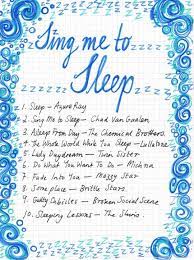 Sing me to
Sleep
1. Sleep - Azure Ray
2. Sing Me to Sleep - Chad Van Gaalen
3. Asleep From Day - The Chemical Brothers.
4. The Whole World Have You Sleep - Lullatone
5. Lady Daydream - Twin Sister
6. Do What You Want To Do -
7. Fade Into You - Mazzy Star
8. Someplace - Brittle Stars
9. Guilty Cubicles - Broken Social Scene
10. Sleeping Lessons - The Shins